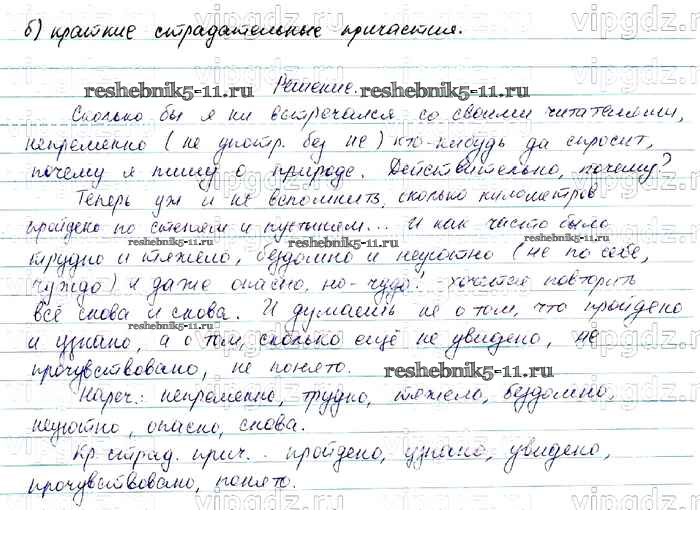 б) краткие страдательные причастия.
Решение.
Сколько бы я ни встречался со своими читателями,
непременно (не употр. без не) кто-нибудь да спросит,
почему я пишу о природе. Действительно, почему?
Теперь уж и не вспомнить, сколько километров
пройдено по степям и пустыням... И как часто было
трудно и тяжело, бездомно и неуютно (не по себе,
чуждо) и даже опасно, но - чудо! - хочется повторить
всё снова и снова. И думаешь не о том, что пройдено
и узнано, а о том, сколько ещё не увидено, не
прочувствовано, не понято.
Нареч.: непременно, трудно, тяжело, бездомно,
неуютно, опасно, снова.
Кр. страд. прич. - пройдено, узнано, увидено,
прочувствовано, понято.
vipgdz.ru
reshebnik5-11.ru
reshebnik5-11.ru
reshebnik5-11.ru
reshebnik5-11.ru
reshebnik5-11.ru